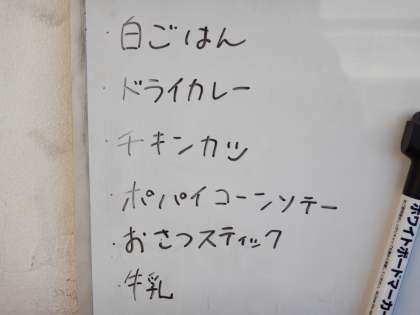 ・白ごはん
・ドライカレー
・チキンカツ
・ポパイコーンソテー
・おさつスティック
・牛乳
ホワイトボードマーカー